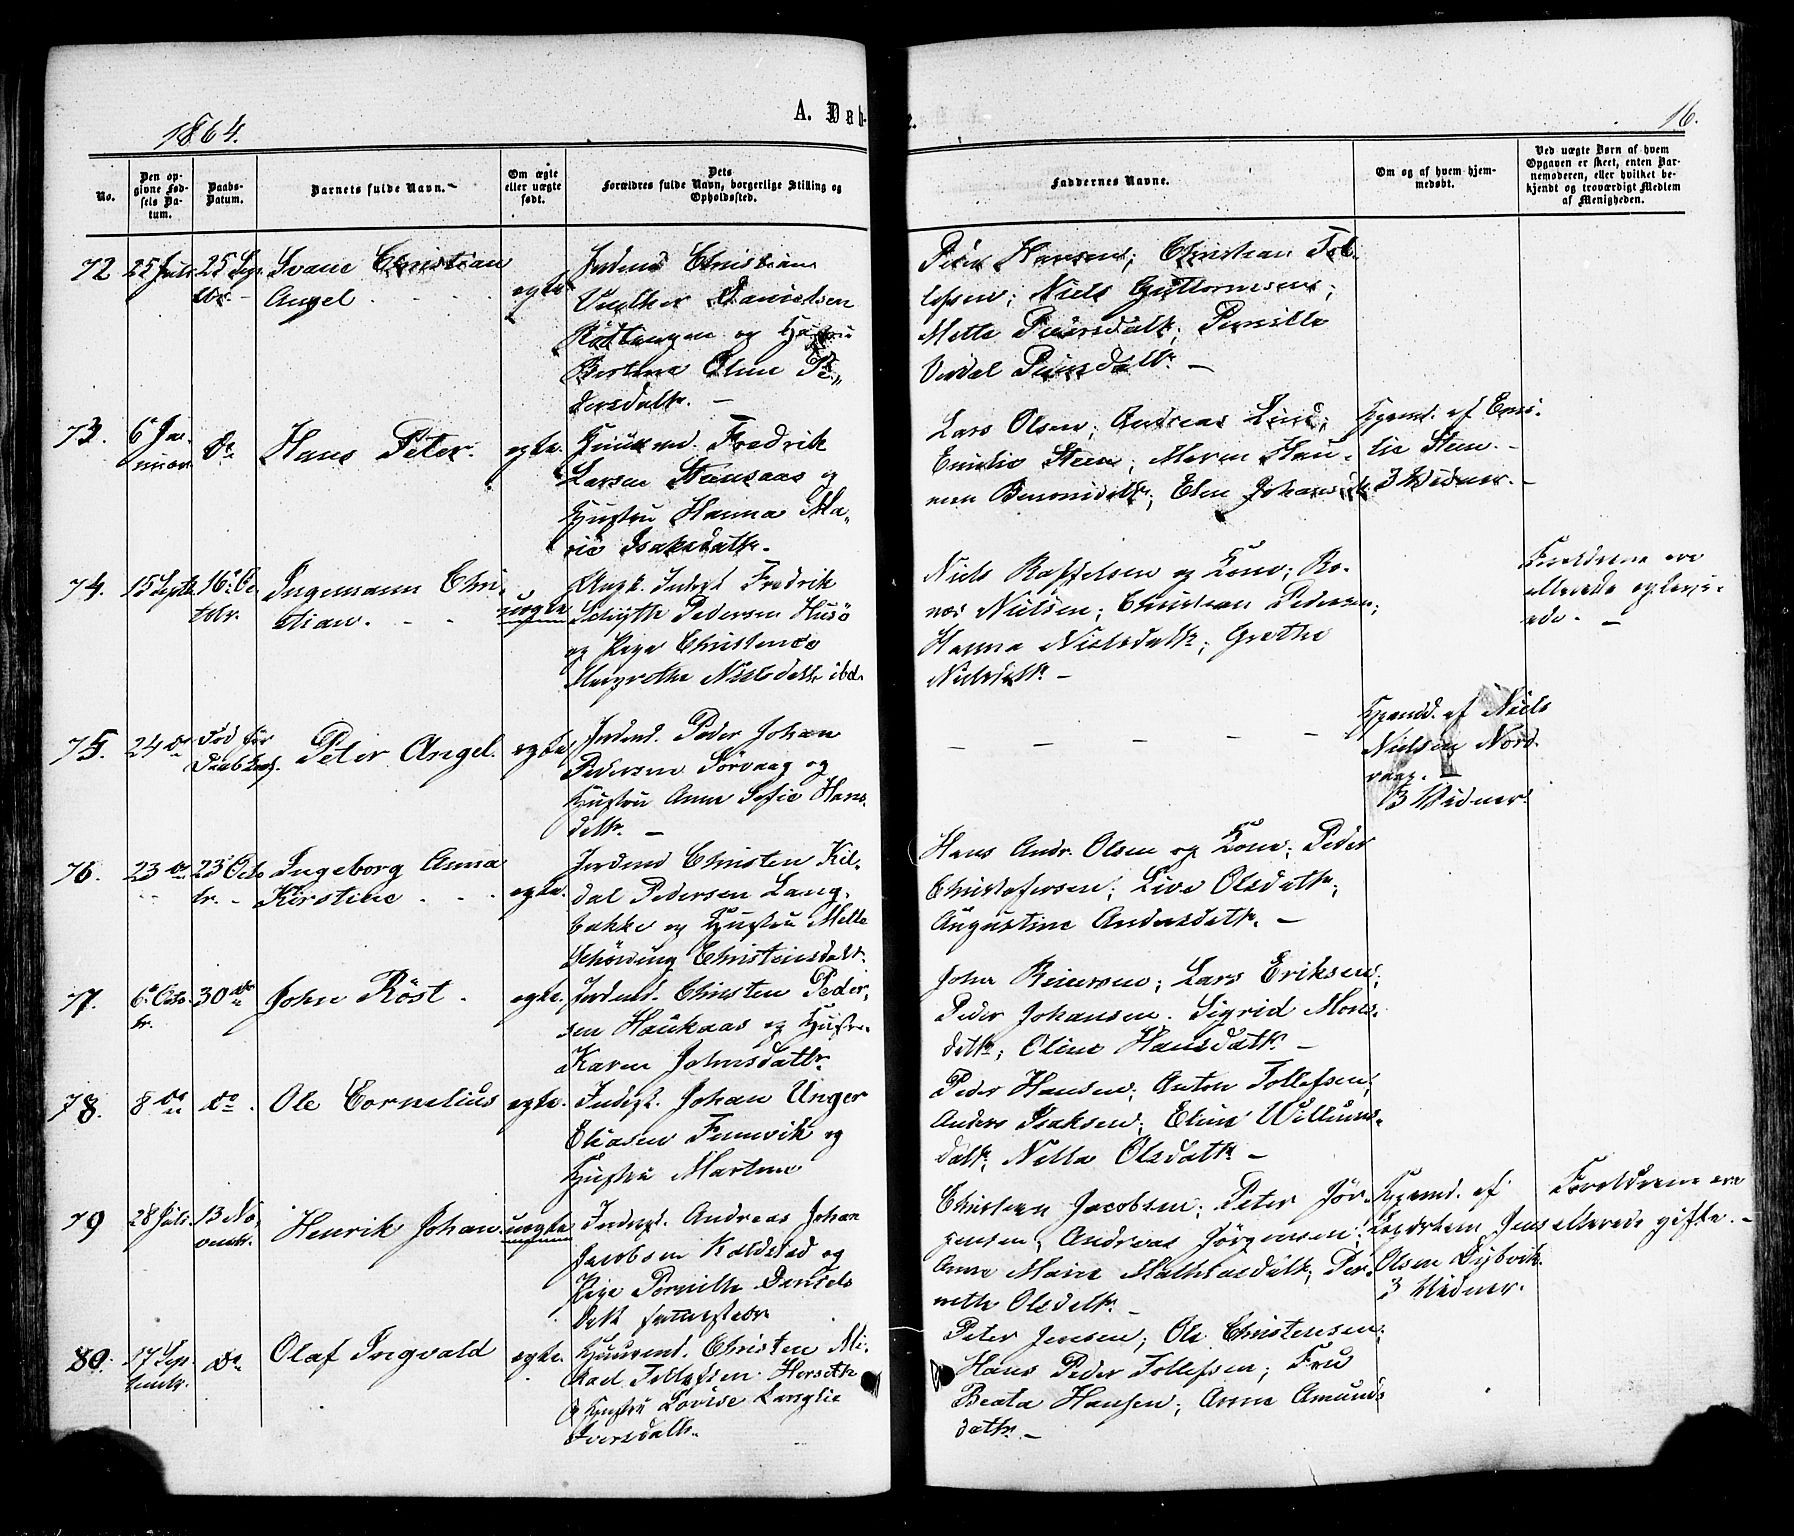 1864.
A. Døb-
e.
16.
No.
Den op-
givne Fød-
sels Da-
tum.
Daabs-
Datum.
Barnets fulde Navn.
Om ægte
eller uægte
født.
Dets
Forældres fulde Navn, borgerlige Stilling og
Opholdssted.
Faddernes Navne.
Om og af hvem hjem-
medøbt.
Ved uægte Børn af hvem
Opgaven er skeet, enten Bar-
nemoderen, eller hvilket be-
kjendt og troværdigt Medlem
af Menigheden.
72
25 Juli
25 Sep.
tbr
Svane Christian
Angel
egte
Inderst Christian
Danielsen
Rödtangen og Hustru
Oline Pe-
dersdatr.
Peder Hansen; Christian Tol-
lefsen; Niels Guttormsen;
Mette Pedersdatr; Pernille
Pedersdatr.
73.
6 Ja-
nuar
do
Hans Peter.
egte.
Fredrik
Larsen Stensaas og
Hustru Hanna Ma-
rie Isaksdatr.
Lars Olsen; Andreas Lind;
Emilie Steen; Maren Han-
Benonisdatr; Elen Johansd.
Hjemd. af Emi-
lie Steen.
3 Vidner.
74.
15 Septr
16 Oc-
tobr.
Ingemann Chri-
stian.
uegte
Ungk. Inderst Fredrik
Schytte Pedersen Husö
og Pige Christence
Margrethe Nielsdatr ibd.
Niels Raffelsen og Kone; Ro-
Nielsen; Christian Pedersen;
Hanna Nielsdatr; Grethe
Nielsdatr.
Foreldrene ere
allerede eglevi-
ede.
75.
24 do
Död för
Daaben.
Peter Angel.
egte
Inderst. Peder Johan
Pedersen Sörvaag og
Hustru Anne Sofie Hans-
datr.
Hjemd. af Niels
Nielsen Nord-
vaag.
3 Vidner.
76.
23 do
23 Octo
br.
Ingeborg Anna
Kirstine
egte.
Inderst Christen Kil-
dal Pedersen Lang-
bakke og Hustru Mette
Schörding Christensdatr.
Hans Andr. Olsen og Kone; Peder
Christofersen; Live Olsdatr;
Augustine Andersdatr.
77.
6 Octo
br.
30 do
John Röst.
egte.
Inderst. Christen Peder-
sen Haukaas og Hustru
Karen Johnsdatr.
John Reiersen; Lars Eriksen;
Peder Johansen. Sigrid Mons-
datr; Oline Hansdatr
78.
8 do
do
Ole Cornelius
egte.
Inderst. Johan Unger
Eliasen Finnvik og
Hustru Martine
Peder Hansen; Anton Tollefsen;
Anders Isaksen; Eline Willums-
datr; Nella Olsdatr
79
28 Juli.
13 No-
vembr.
Henrik Johan
uegte
Inderst. Andreas Johan
Jacobsen Kaldstad og
Pige Pernille Daniels
datr sammestedr
Christian Jacobsen; Peter Jör-
gensen; Andreas Jörgensen;
Anne Marie Mathiasdatr; Per-
nelle Olsdatr.
Hjemd. af
Jens
Olsen Dybvik.
3 Vidner.
Foreldrene ere
allerede gifte.
80.
17 Sep-
tembr.
do
Olaf Ingvald
egte.
Huusmd. Christen Mi-
kael Tollefsen Herseth
og Hustru Lovise Langlie
Iversdatr.
Peter Jensen; Ole Christensen;
Hans Peder Tollefsen; Fru
Beata Hansen; Anne Amunds
datr.